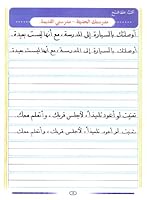 مدرستك الحديثة - مدرستي القديمة
أوصلتك بالسيارة إلى المدرسة ، مع أنها ليست بعيدة.
أوصلتك بالسيارة إلى المدرسة ، مع أنها ليست بعيدة.
تمنيت لو أعود تلميذاً، لأجلس قربك ، وأتعلم معك.
تمنيت لو أعود تلميذاً، لأجلس قربك ، وأتعلم معك.